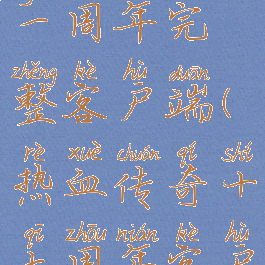 一周年完
zhěng kè hù duān
整客户端(
rè xuè chuán qí shí
热血传奇十
qī zhōu nián kè hù
七周年客户